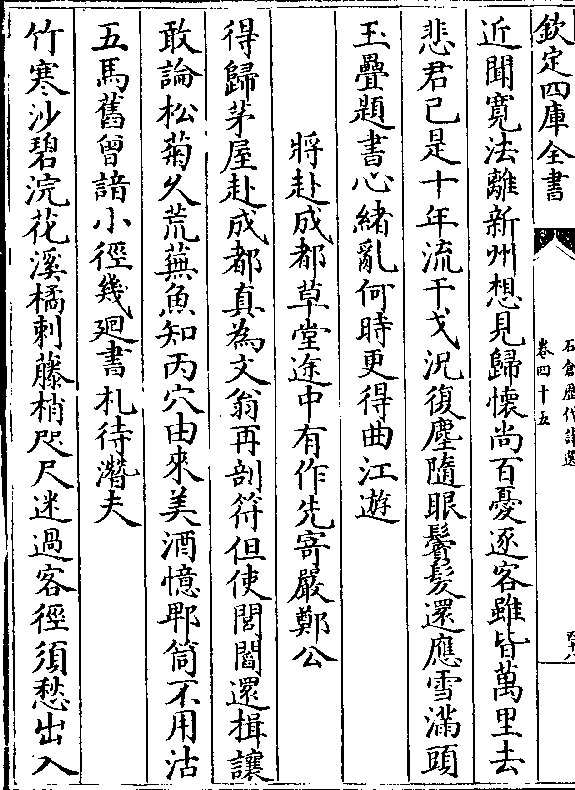 欽定四庫全書
石倉歴代詩選
卷四十五
近聞寛法離新州想見歸懷尚百憂逐客雖皆萬里去
悲君已是十年流干戈況復塵隨眼鬢髮還應雪滿頭
玉壘題書心緒亂何時更得曲江遊
將赴成都草堂途中有作先寄嚴鄭公
得歸茅屋赴成都真為文翁再剖符但使閭閻還揖讓
敢論松菊久荒蕪魚知丙穴由來美酒憶郫筒不用沽
五馬舊曾諳小徑幾廻書札待潛夫
竹寒沙碧浣花溪橘刺藤梢咫尺迷過客徑須愁出入